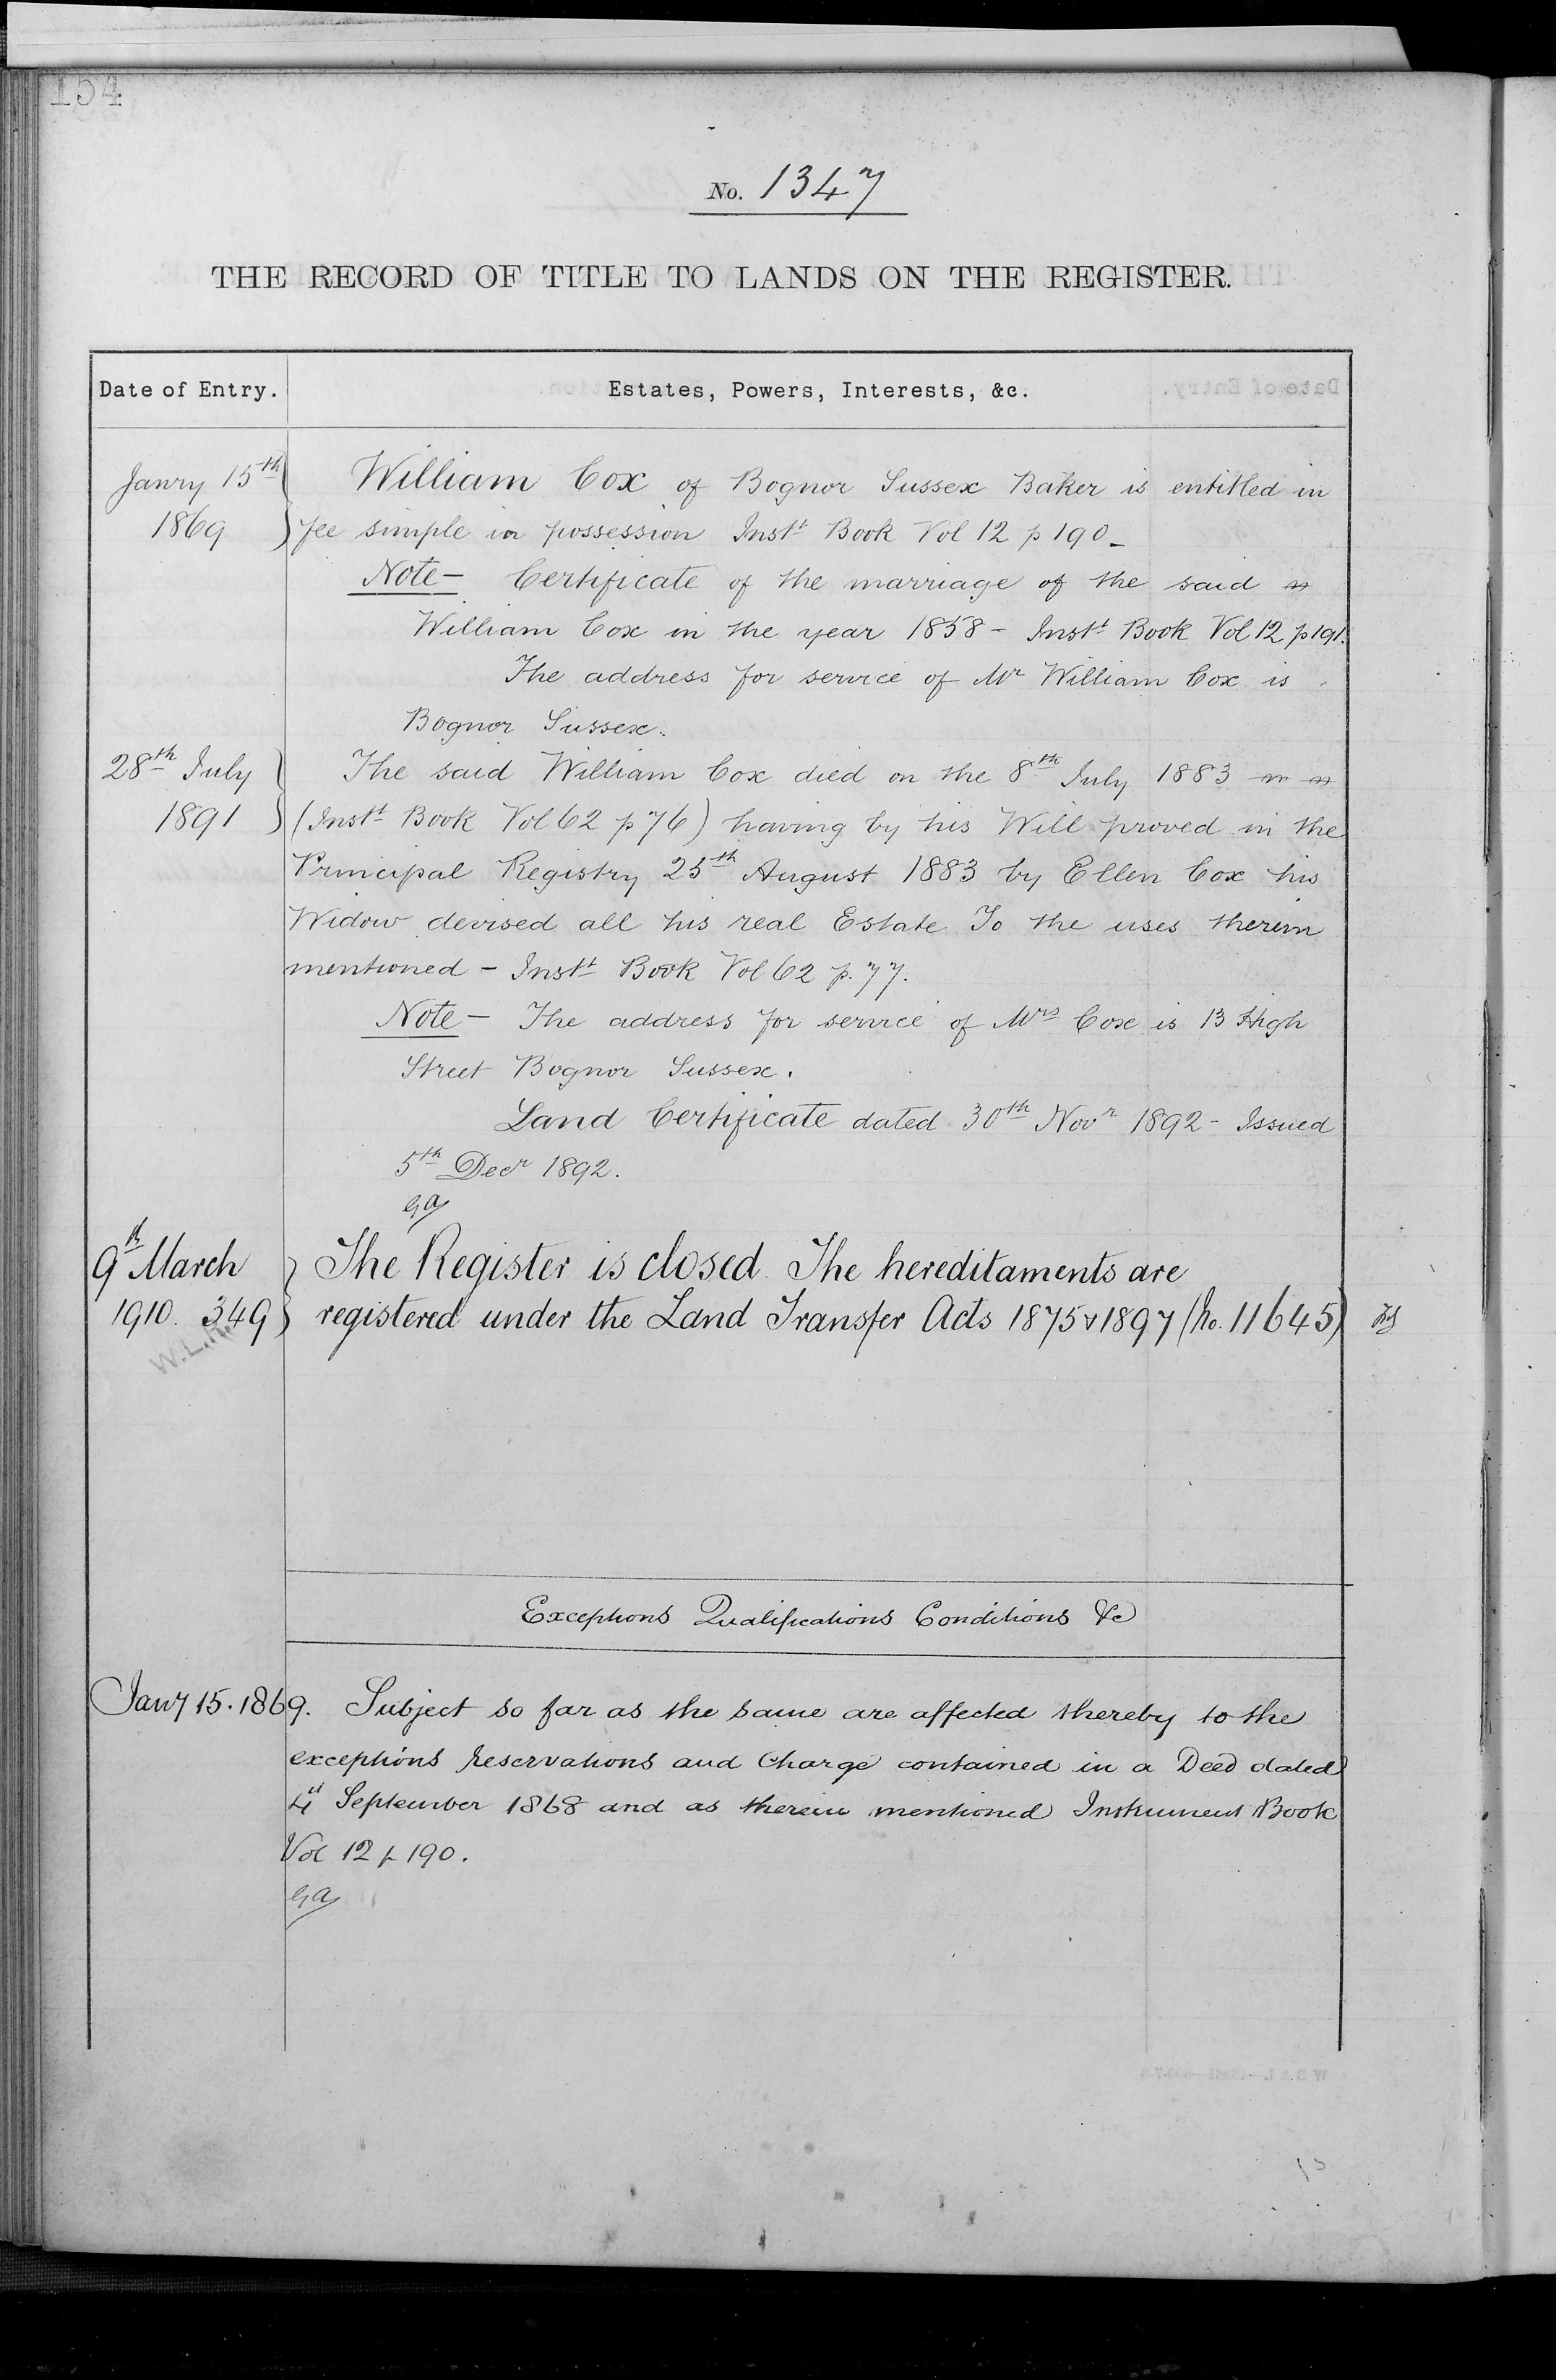 154
No. 1347
THE RECORD OF TITLE TO LANDS ON THE REGISTER.
Date of Entry. Estates, Powers, Interests, &c.
Janry 15th William Cox of Bognor Sussex Baker is entitled in
1869 fee simple in possession Instt Book Vol 12 p 190 -
Note - Certificate of the marriage of the said
William Cox in the year 1858 - Instt Book Vol 12 p 191.
The address for service of Mr William Cox is
Bognor Sussex.
28th July The said William Cox died on the 8th July 1883
1891 (Instt Book Vol 62 p 76) having by his Will proved in the
Principal Registry 25th August 1883 by Ellen Cox his
Widow devised all his real Estate To the uses therein
mentioned - Instt Book Vol 62 p. 77.
Note - The address for service of Mrs Cox is 13 High
Street Bognor Sussex.
Land Certificate dated 30th Novr 1892 - Issued
5th Decr 1892.
9th March The Register is closed. The hereditaments are
1910. 349 registered under the Land Transfer Acts 1875 & 1897 (No. 11645)
Exceptions Qualifications Conditions &c
Jany 15. 1869. Subject so far as the same are affected thereby to the
exceptions reservations and Charge contained in a Deed dated
4th September 1868 and as therein mentioned Instrument Book
Vol 12 p 190.